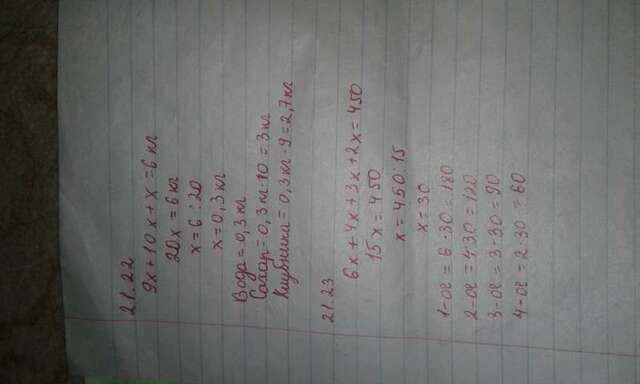 21.22
9x+10x+x=6кг
20x=6кг
x=6:20
x=0,3кг
Вода=0,3кг
Сахар=0,3кг·10=3кг
Клубника=0,3кг·9=2,7кг
21.23
6x+4x+3x+2x=450
15x=450
x=450:15
x=30
1-ое=6·30=180
2-ое=4·30=120
3-ое=3·30=90
4-ое=2·30=60